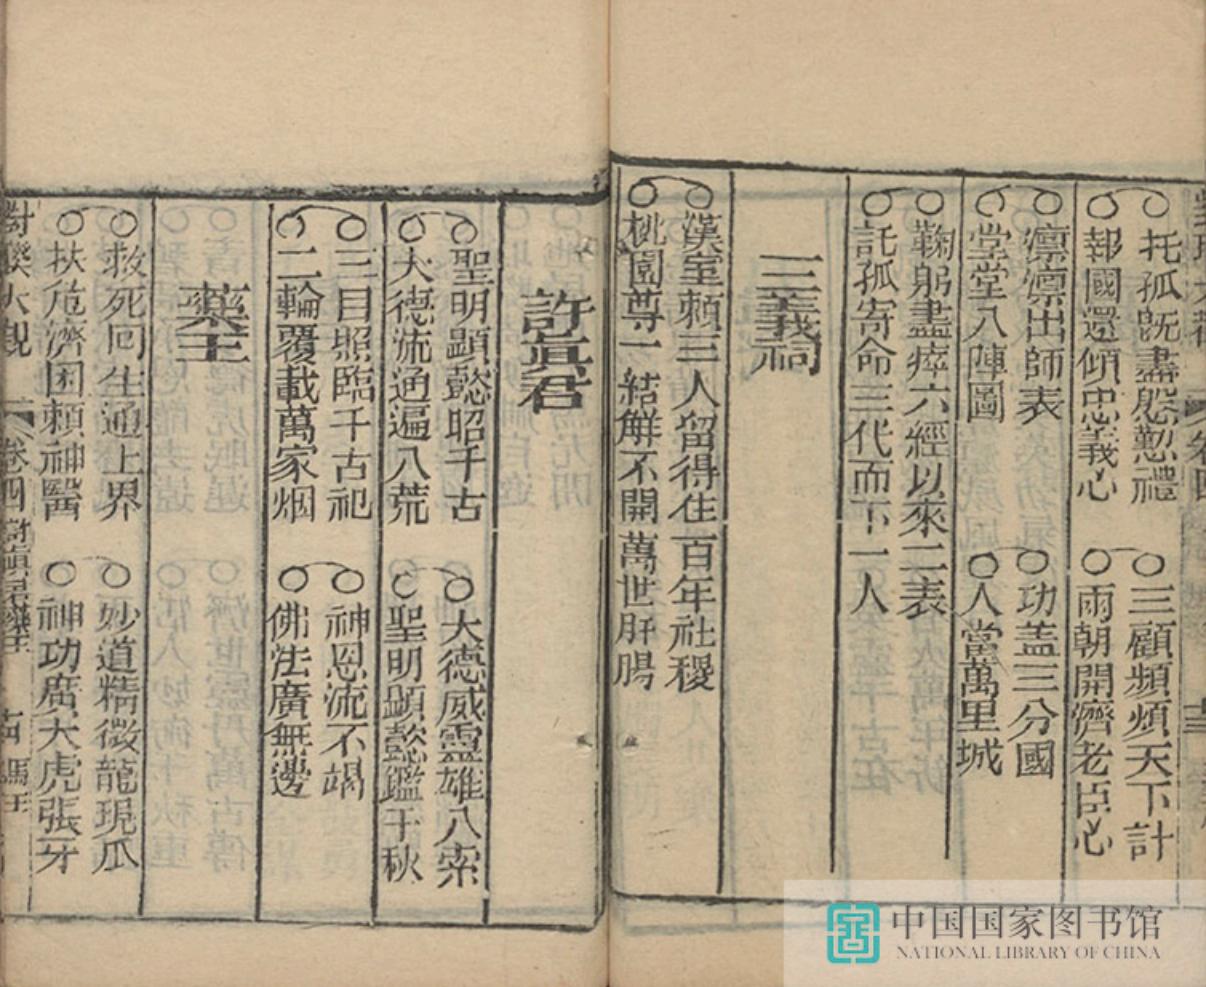 托孤既盡慇懃禮
三顧頻煩天下計
報國還傾忠義心
兩朝開濟老臣心
凛凛出師表
功盖三分國
堂堂八陣圖
人當萬里城
鞠躬盡瘁六經以來二表
託孤寄命三代而下一人
三義祠
漢室頼三人留得住百年社稷
桃園尊一結解不開萬世肝腸
許眞君
聖明顯懿昭千古
大德威靈雄八索
大德流通遍八荒
聖明顯懿鑑千秋
三目照臨千古祀
神恩流不竭
二輪覆載萬家烟
佛法廣無邊
藥王
救死回生通上界
妙道精微龍現瓜
扶危濟困頼神醫
神功廣大虎張牙
對聯大觀
卷四
許眞君藥王
馬王
中国国家图书馆
NATIONAL LIBRARY OF CHINA